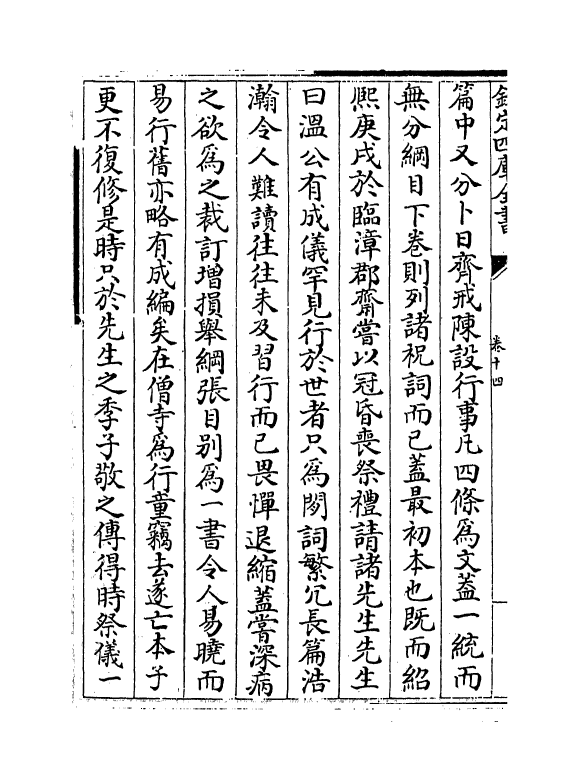 欽定四庫全書
卷十四
篇中又分卜日齊戒陳設行事凡四條為文蓋一統而
無分綱目下卷則列諸祝詞而已蓋最初本也既而紹
熙庚戌於臨漳郡齋嘗以冠昏喪祭禮請諸先生先生
曰溫公有成儀罕見行於世者只為閡詞繁冗長篇浩
瀚令人難讀往往未及習行而已畏憚退縮蓋嘗深病
之欲為之裁訂增損舉綱張目别為一書令人易曉而
易行舊亦略有成編矣在僧寺為行童竊去遂亡本子
更不復修是時只於先生之季子敬之傳得時祭儀一